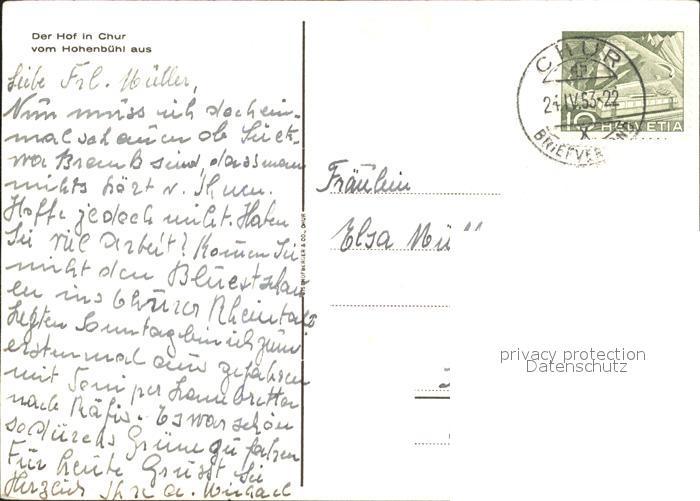 Der Hof in Chur
vom Hohenbühl aus
Liebe Frl. Müller,
Nun muss ich doch ein-
mal schauen ob Sie
sind, dass man
nichts hört v. Ihnen.
Hoffe jedoch nicht. Haben
Sie viel Arbeit? Komen Sie
nicht den Bluestschau
en ins Churer Rheintal?
Letzten Sonntag bin ich zum
erstenmal aus gefahren
mit Toni per Lambretta
nach Räfis. Es war schön
so dürchs Grüne zu fahren
Für heute Grüsst Sie
Herzlich Ihre A.
CHUR
24.IV.53-22
X
BRIEFVER
10 HELVETIA
Fräulein
Elsa Mü
privacy protection
Datenschutz